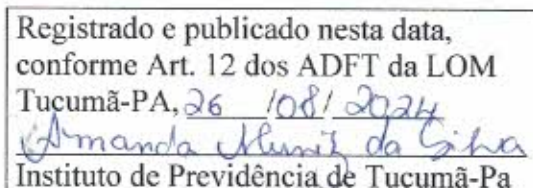 Registrado e publicado nesta data,
conforme Art. 12 dos ADFT da LOM
Tucumã-PA, 26 /08/ 2024
Amanda Muniz da Silva
Instituto de Previdência de Tucumã-Pa